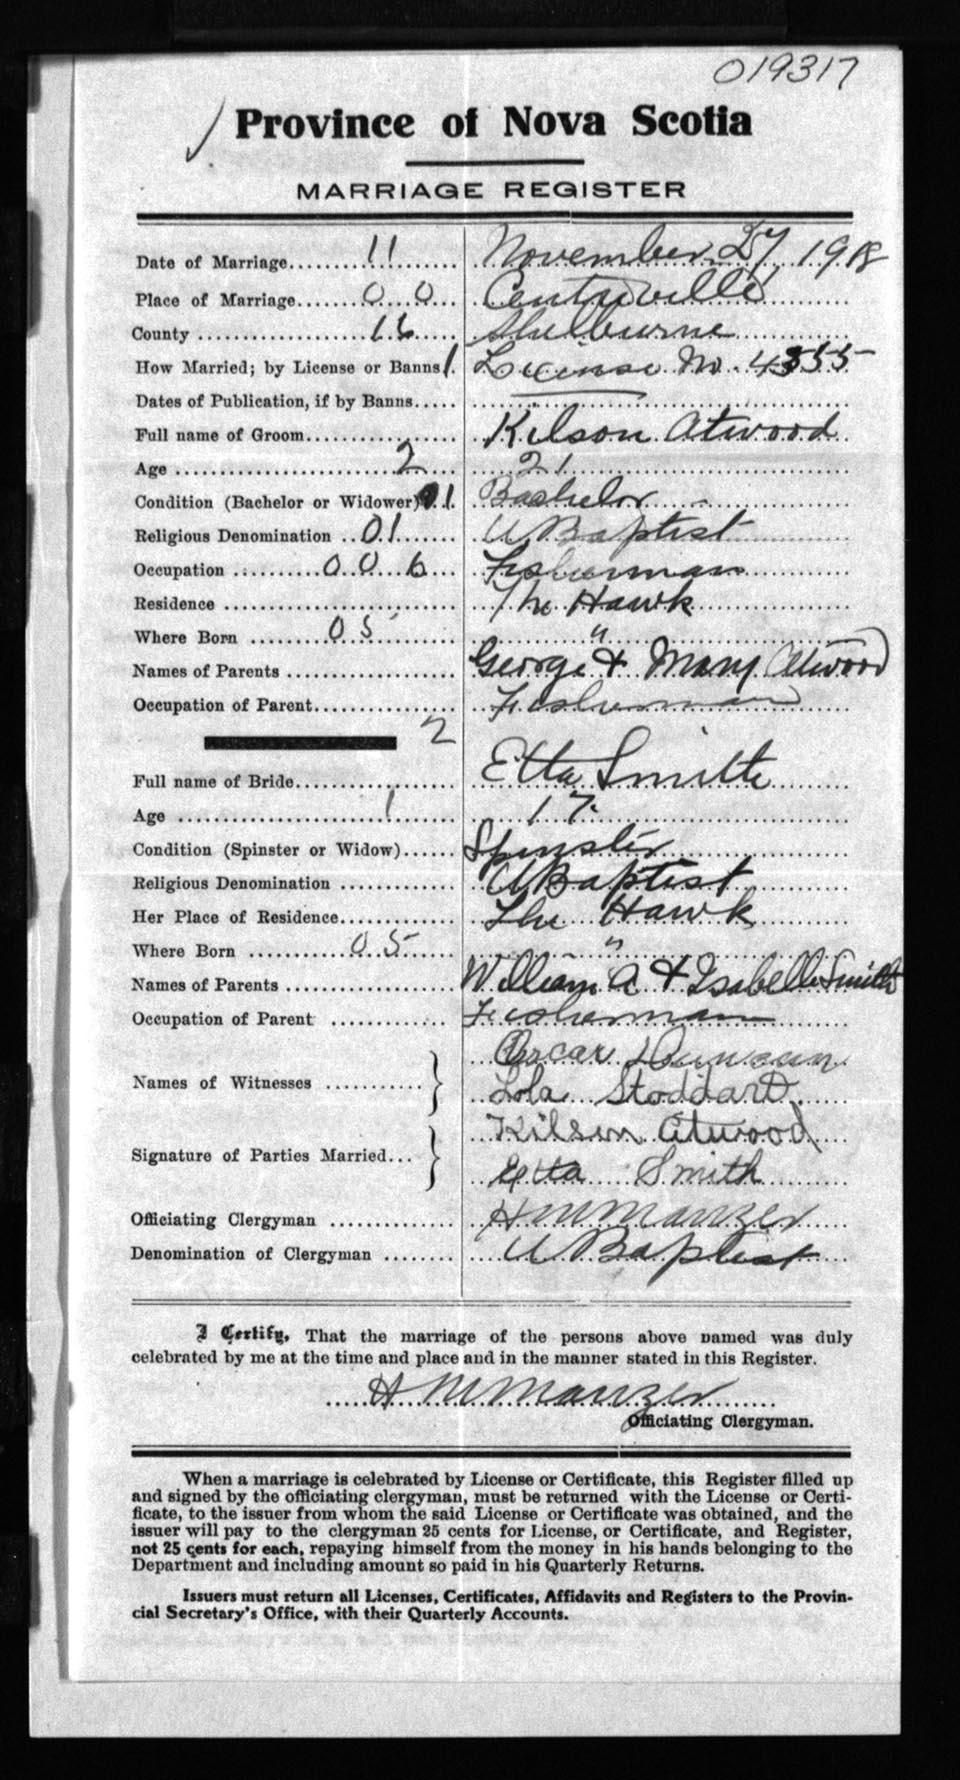 019317
Province of Nova Scotia
MARRIAGE REGISTER
Date of Marriage 11 November 27 1918
Place of Marriage 0 0 Centreville
County 16 Shelburne
How Married; by License or Banns 1 License No. 4355
Dates of Publication, if by Banns
Full name of Groom Kilson Atwood
Age 2 21
Condition (Bachelor or Widower) 1 Bachelor
Religious Denomination 01 U Baptist
Occupation 0 0 6 Fisherman
Residence The Hawk
Where Born 0 5 "
Names of Parents George & Mary Atwood
Occupation of Parent Fisherman
2
Full name of Bride Etta Smith
Age 1 17
Condition (Spinster or Widow) Spinster
Religious Denomination U Baptist
Her Place of Residence The Hawk
Where Born 0 5 "
Names of Parents William A & Isabelle Smith
Occupation of Parent Fisherman
Names of Witnesses Oscar Duncan
Lola Stoddard
Signature of Parties Married Kilson Atwood
Etta Smith
Officiating Clergyman H M Manzer
Denomination of Clergyman U Baptist
I Certify, That the marriage of the persons above named was duly
celebrated by me at the time and place and in the manner stated in this Register.
H M Manzer
Officiating Clergyman.
When a marriage is celebrated by License or Certificate, this Register filled up
and signed by the officiating clergyman, must be returned with the License or Certi-
ficate, to the issuer from whom the said License or Certificate was obtained, and the
issuer will pay to the clergyman 25 cents for License, or Certificate, and Register,
not 25 cents for each, repaying himself from the money in his hands belonging to the
Department and including amount so paid in his Quarterly Returns.
Issuers must return all Licenses, Certificates, Affidavits and Registers to the Provin-
cial Secretary's Office, with their Quarterly Accounts.